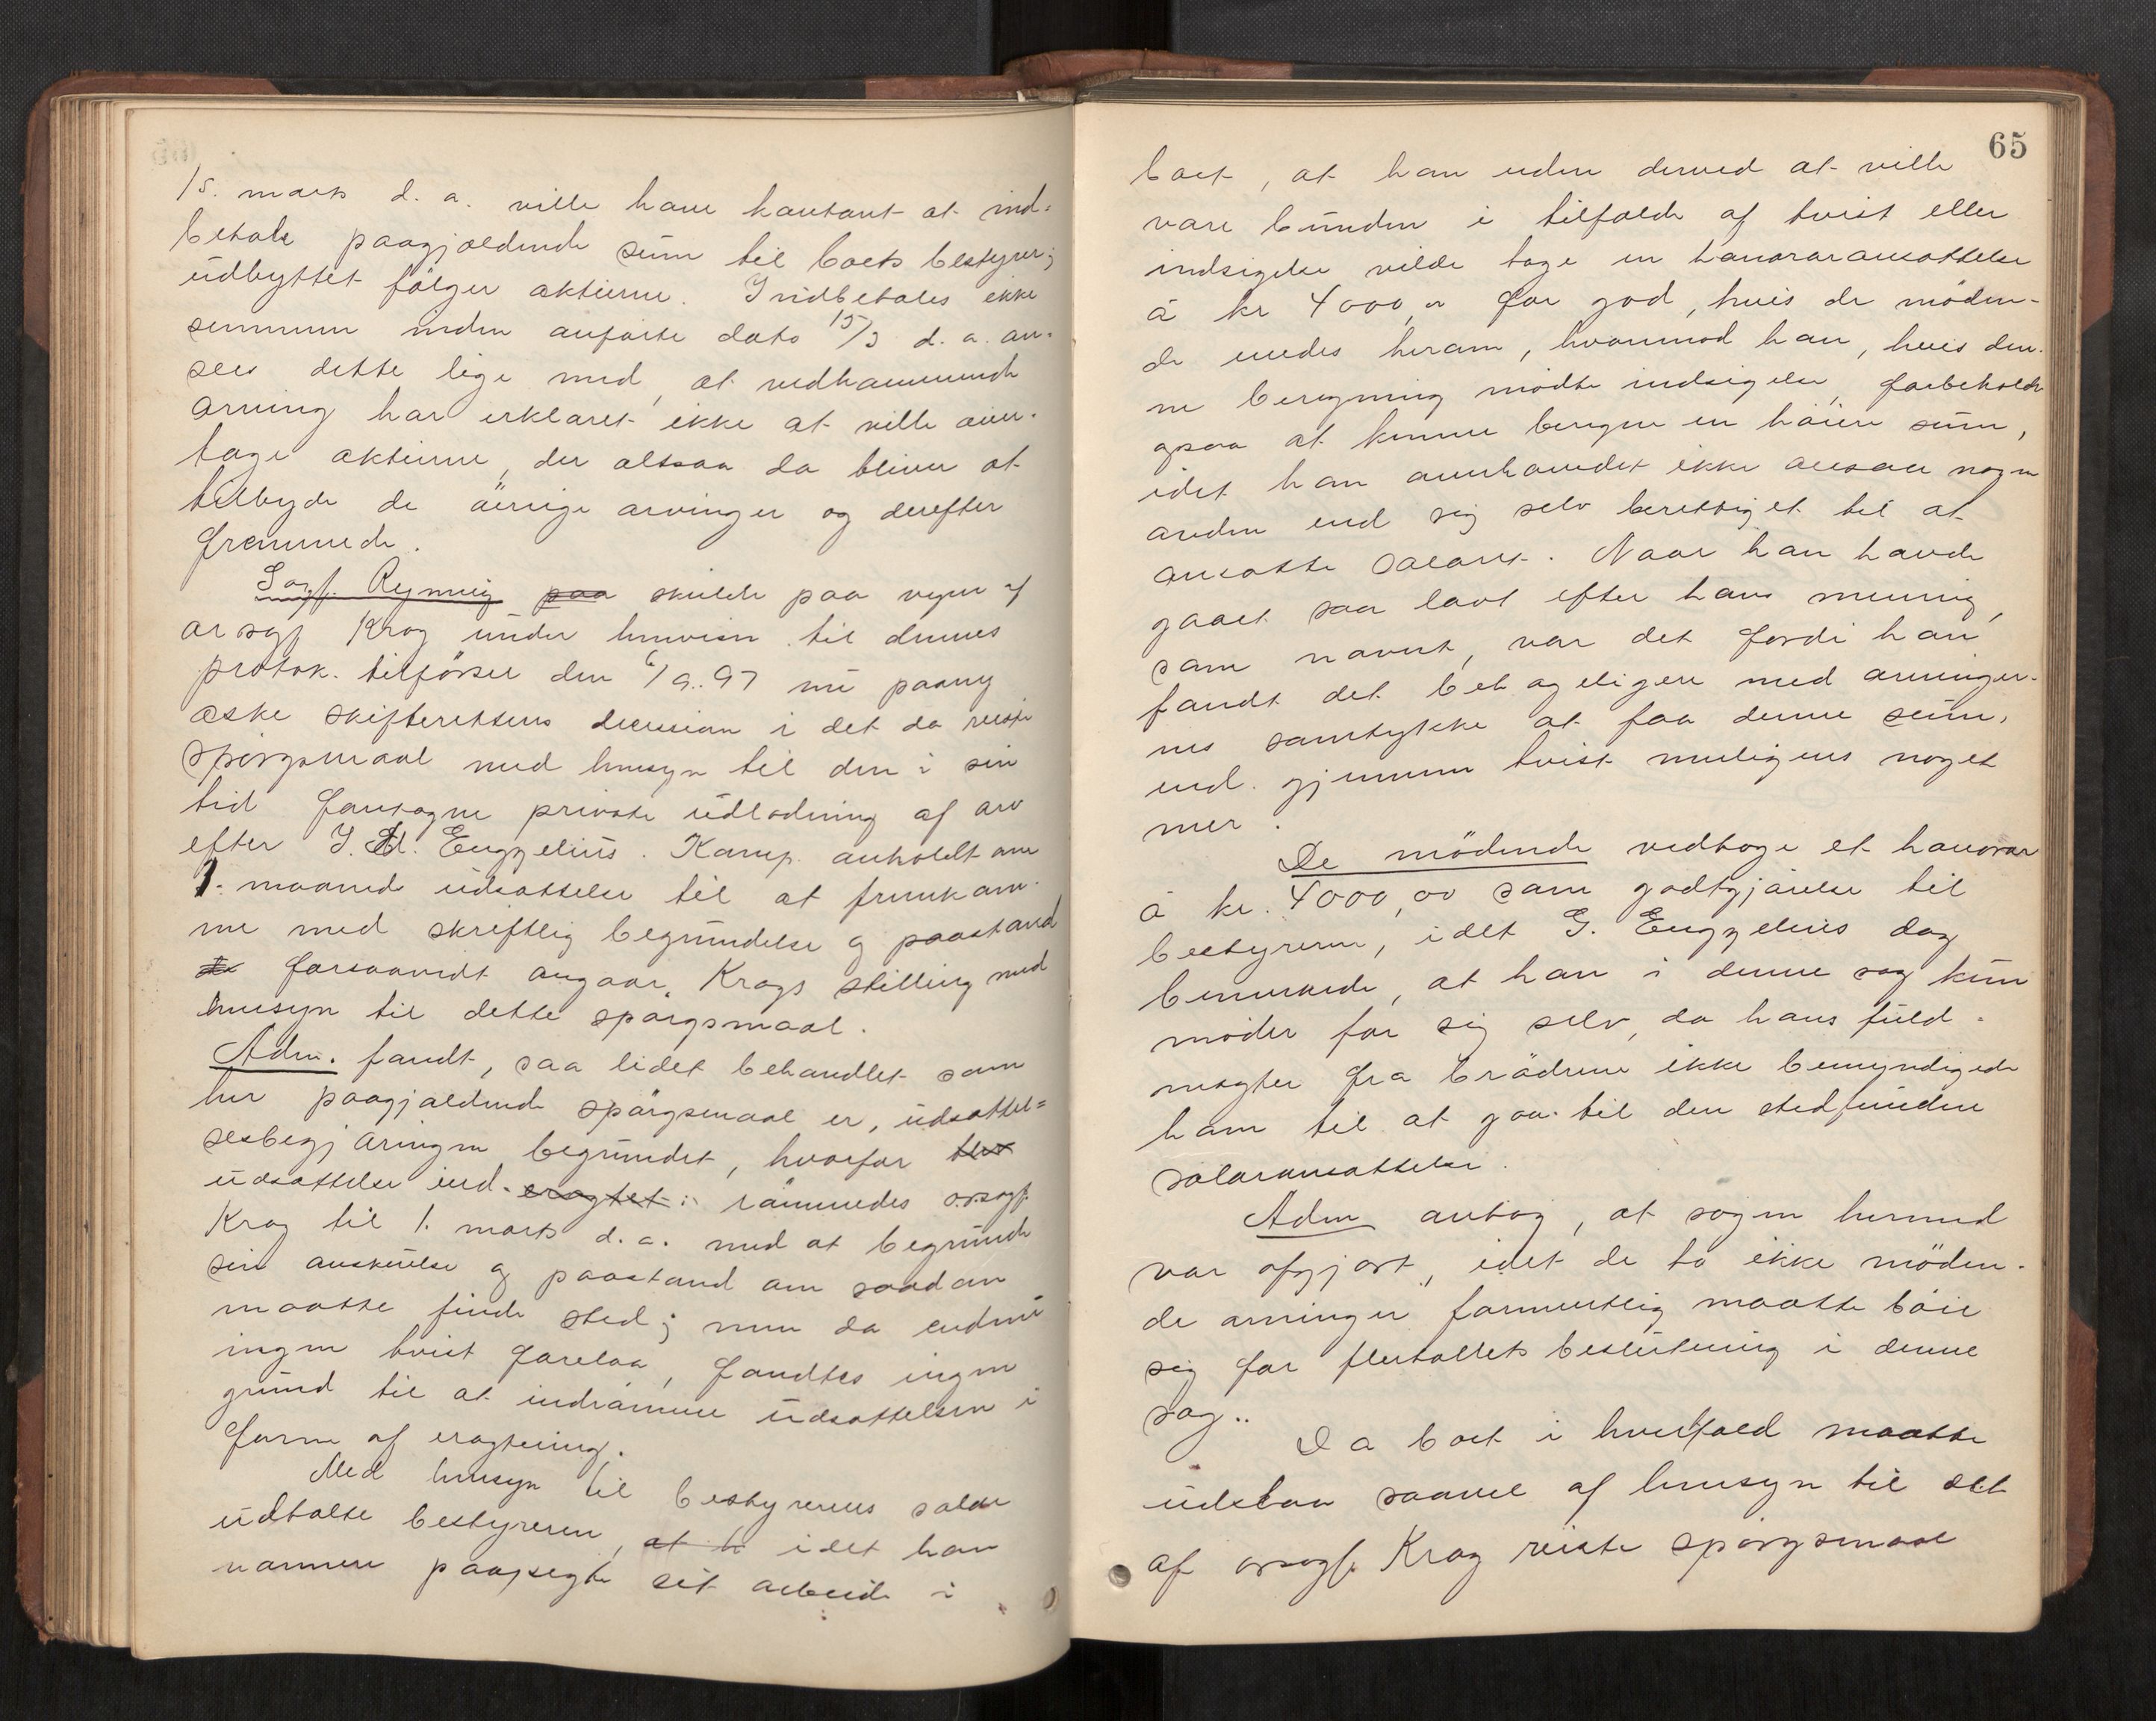 15. marts d. a. ville have kontant at ind=
betale paagjældende sum til boets bestyrer;
udbyttet følger aktierne. Indbetales ikke
summen inden anførte dato 15/3 d. a. an-
sees dette lige med, at vedkommende
arving har erklæret ikke at ville over-
tage aktierne, der altsaa da bliver at
tilbyde de øvrige arvinger og derefter
fremmede.
Sagf. Rynning paa skulde paa vegne af
orsgf Krog under henvisn. til dennes
protok. tilførsel den 6/9.97 nu paany
æske skifterettens decision i det da reiste
spørgsmaal med hensyn til den i sin
tid foretagne private udlodning af arv
efter J. Ad. Engzelius. Komp. anholdt om
1. maaneds udsættelse til at fremkom-
me med skriftlig begrundelse og paastand
forsaavidt angaar Krogs stilling med
hensyn til dette spørgsmaal.
Adm. fandt, saa lidet behandlet som
her paagjældende spørgsmaal er, udsættel=
sesbegjæringen begrundet, hvorfor blev
udsættelse ind- eragtet: rømmedes orsagf.
Krog til 1. marts d. a. med at begrunde
sin anskuelse og paastand om saadan
maatte finde sted; men da endnu
ingen tvist forelaa, fandtes ingen
grund til at indrømme udsættelsen i
form af eragtning.
Med hensyn til bestyrerens salær
udtalte bestyreren, at h idet han
nærmere paapegte sit arbeide i
65
boet, at han uden derved at ville
være bunden i tilfælde af tvist eller
indsigelse vilde tage en honoraransættelse
à kr 4000,00 for god, hvis de møden-
de enedes herom, hvorimod han, hvis den-
ne beregning mødte indsigelse, forbeholdt
ogsaa at kunne beregne en høiere sum,
idet han overhovedet ikke ansaa nogen
anden end sig selv berettiget til at
ansætte salæret. Naar han havde
gaaet saa lavt efter hans mening,
som nævnt, var det fordi han
fandt det behageligere med arvinger-
nes samtykke at faa denne sum,
end gjennem tvist muligens noget
mer.
De mødende vedtoge et honorar
à kr. 4000,00 som godtgjørelse til
bestyreren, idet G. Engzelius dog
bemerkede, at han i denne sag kun
møder for sig selv, da hans fuld-
magter fra brødrene ikke bemyndigede
ham til at gaa til den stedfundne
salæransættelse.
Adm antog, at sagen hermed
var afgjort, idet de to ikke møden-
de arvinger formentlig maatte bøie
sig for flertallets beslutning i denne
sag..
Da boet i hvertfald maatte
udstaa saavel af hensyn til det
af orsagf. Krog reiste spørgsmaal